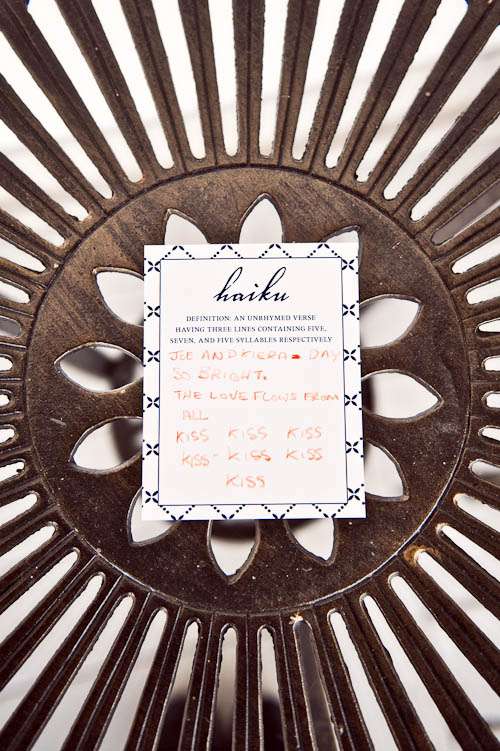 haiku
DEFINITION: AN UNRHYMED VERSE
HAVING THREE LINES CONTAINING FIVE,
SEVEN, AND FIVE SYLLABLES RESPECTIVELY
JEE AND KIERA - DAY
SO BRIGHT.
THE LOVE FLOWS FROM
ALL
KISS KISS KISS
KISS - KISS KISS
KISS